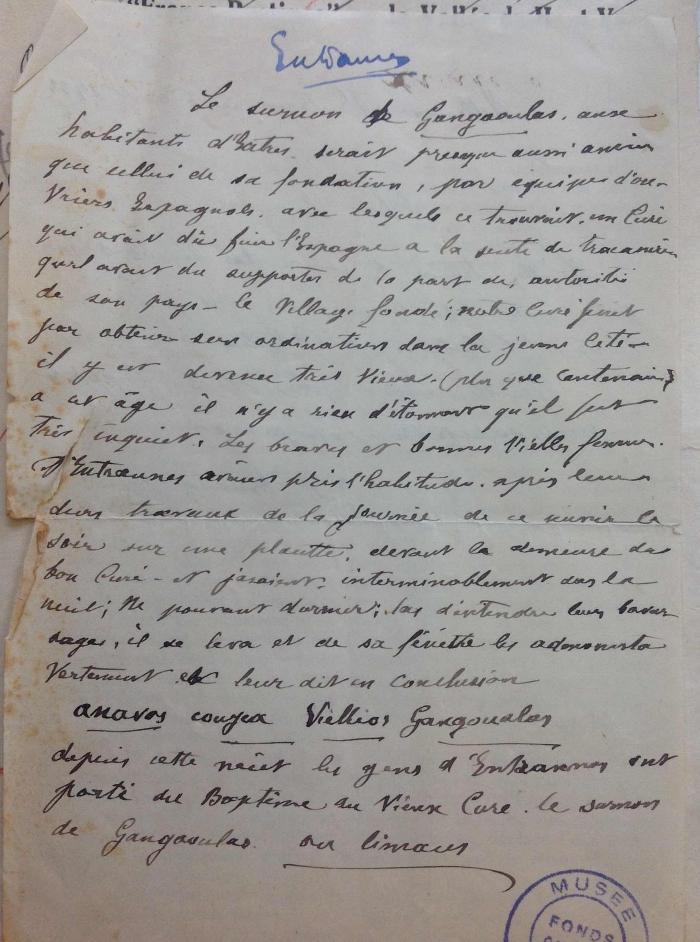 Entraunes
Le surnon de Gangaoulas. aux
habitants d'Entrs. serait presque aussi ancien
que cellui de sa fondation, par équipe d'ou-
vriers Espagnols. avec lesquels ce trouvait. un Curé
qui avait dû fuir l'Espagne a la suite de tracasseries
quel avait du supporter de la part des autorités
de son pays - le village fondé; notre Curé finit
par obtenir son ordination dans la jeune Cité -
il y est devenu très vieux. (plus que centenaire)
a cet âge il n'y a rien d'étonnant qu'il fut
très inquiet. Les braves et bonnes vielles femmes.
d'Entraunes avaient pris l'habitude. après leurs
durs travaux de la journée de ce réunir le
soir sur une placette, devant la demeure du
bon Curé - et jasaient. interminablement dans la
nuit; Ne pouvant dormir; las d'entendre leurs bavar
dages, il se leva et de sa fenêtre les admonesta
vertement et leur dit en conclusion
anavos couyea Viellios Gangoualas
depuis cette nuit les gens d'Entraunes ont
porté du Baptême du Vieux Curé. le surnon
de Gangaoulas. ou limaces
MUSEE
FONDS